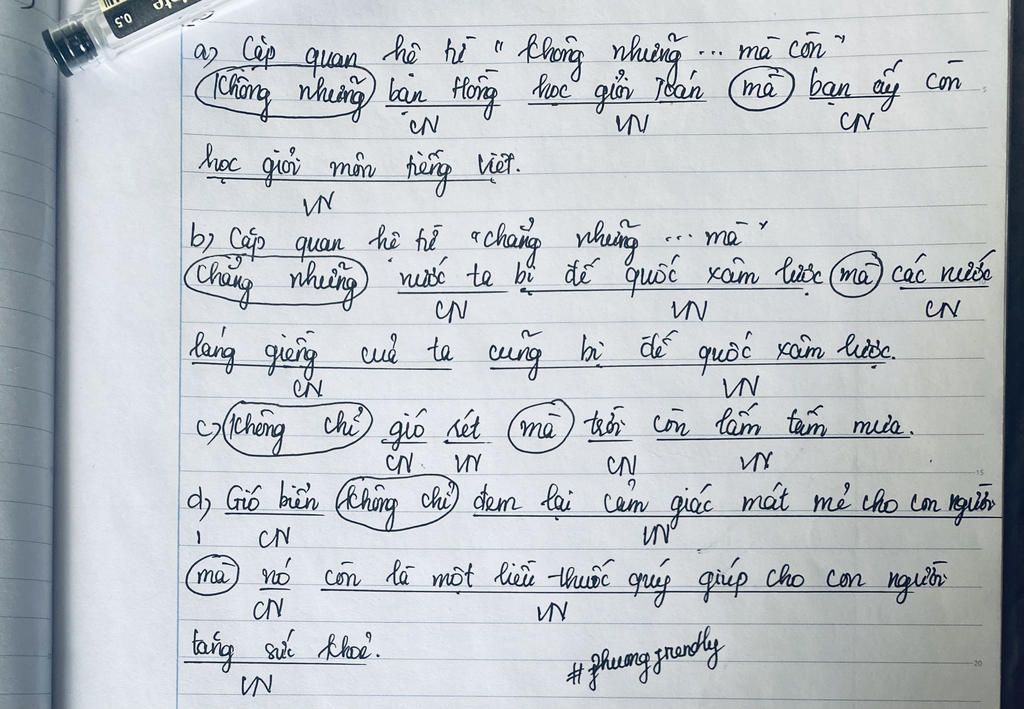 0.5
a) Cặp quan hệ từ "không những ... mà còn"
Không những bạn Hồng học giỏi Toán mà bạn ấy còn
CN VN CN
học giỏi môn tiếng Việt.
VN
b) Cặp quan hệ từ "chẳng những ... mà"
Chẳng những nước ta bị đế quốc xâm lược mà các nước
CN VN CN
láng giềng của ta cũng bị đế quốc xâm lược.
CN VN
c) Không chỉ gió rét mà trời còn lấm tấm mưa.
CN VN CN VN
15
d) Gió biển không chỉ đem lại cảm giác mát mẻ cho con người
CN VN
mà nó còn là một liều thuốc quý giúp cho con người
CN VN
tăng sức khoẻ.
VN
#phuongfrendly
20